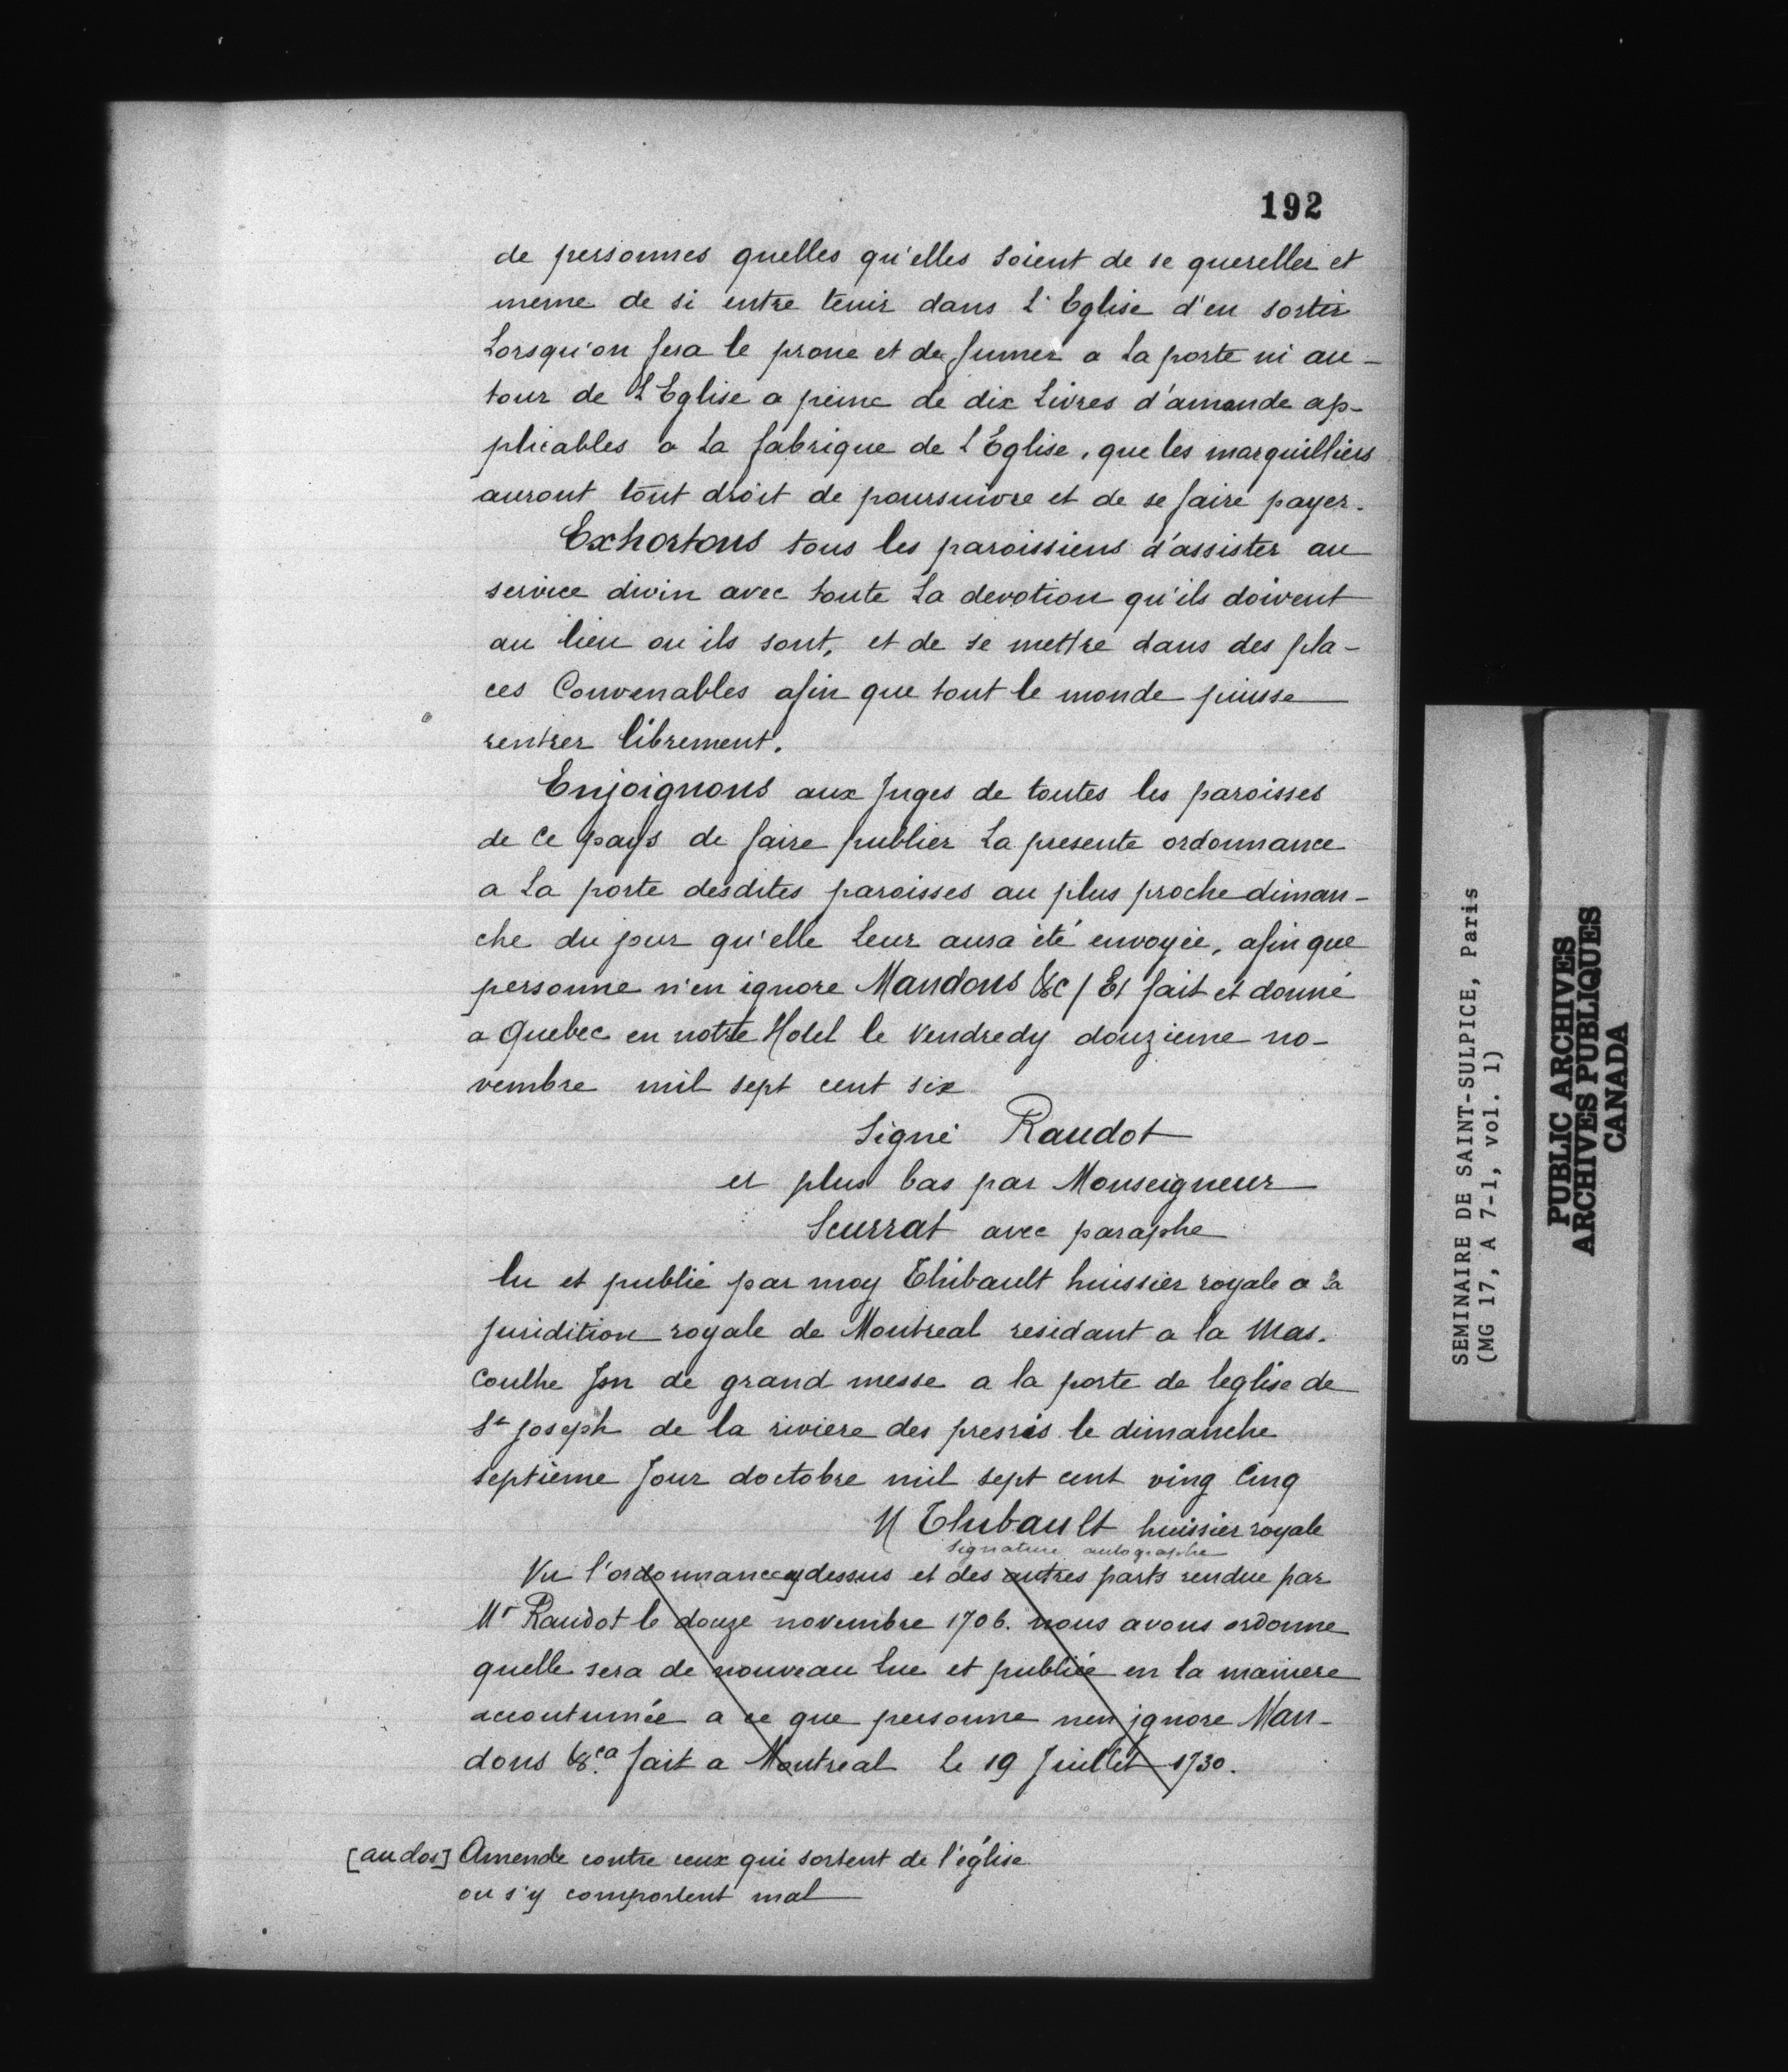 192
de personnes quelles qu'elles soient de se quereller et
meme de si entre tenir dans L'Eglise d'en sortir
Lorsqu'on fera le prone et de fumer a La porte ni au-
tour de L'Eglise a peine de dix Livres d'amande ap-
plicables a La fabrique de L'Eglise, que les marguilliers
auront tout droit de poursuivre et de se faire payer.
Exhortons tous les paroissiens d'assister au
service divin avec toute La devotion qu'ils doivent
au lieu ou ils sont, et de se mettre dans des pla-
ces Convenables afin que tout le monde puisse
rentrer librement.
Enjoignons aux Juges de toutes les paroisses
de Ce pays de faire publier La presente ordonnance
a La porte desdites paroisses au plus proche diman-
che du jour qu'elle Leur aura été envoyée, afin que
personne n'en ignore Mandons &c / Et fait et donné
a Quebec en notre Hotel le Vendredy douzieme no-
vembre mil sept cent six
Signé Raudot
et plus bas par Monseigneur
Seurrat avec paraphe
lu et publié par moy Thibault huissier royale a la
juridition royale de Montreal residant a la Mas.
Couche Jsn de grand messe a la porte de leglise de
St Joseph de la riviere des presris le dimanche
septieme Jour doctobre mil sept cent ving Cinq
N Thibault huissier royale
signature autographe
Vu l'ordonnance cydessus et des autres parts rendue par
Mr Raudot le douze novembre 1706. nous avons ordonne
quelle sera de nouveau lue et publiée en la maniere
accoutumée a ce que personne nen ignore Man-
dons &ca fait a Montreal le 19 Juillet 1730.
[au dos] Amende contre ceux qui sortent de l'église
ou s'y comportent mal
SEMINAIRE DE SAINT-SULPICE, Paris
(MG 17, A 7-1, vol. 1)
PUBLIC ARCHIVES
ARCHIVES PUBLIQUES
CANADA